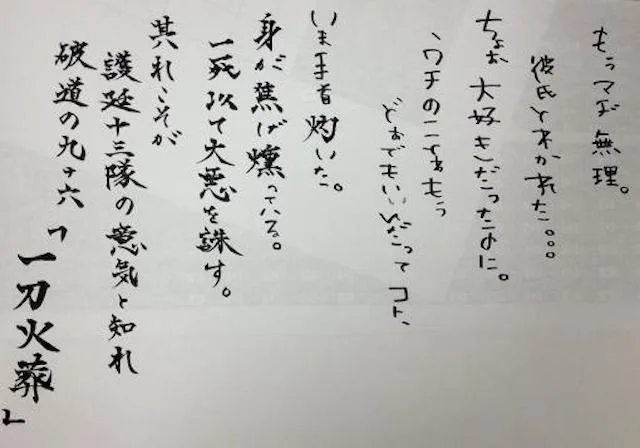 もぅマヂ無理。
彼氏とゎかれた。。。
ちょぉ大好きだったのに。
、ウチのことゎもぅ
どぉでもいぃんだってコト、
いま手首灼いた。
身が焦げ燻っている。
一死以て大悪を誅す。
其れこそが
護廷十三隊の意気と知れ
破道の九十六「
一刀火葬」